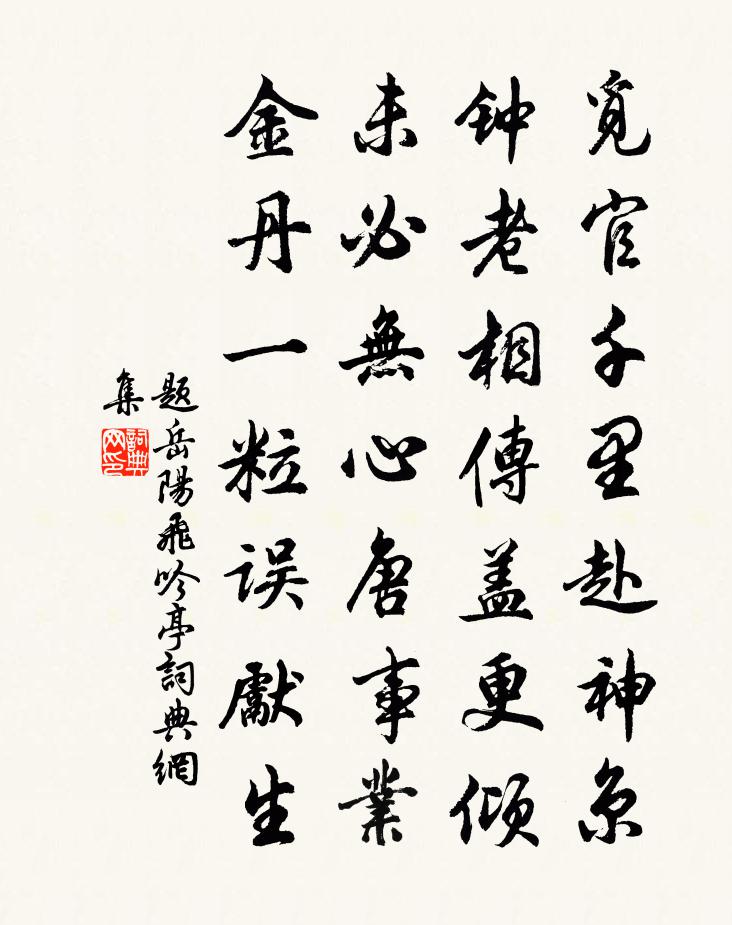 覓官千里赴神京
钟老相傳盖更傾
未必無心唐事業
金丹一粒误獻生
題岳陽飛吟亭詞典網
集
詞典
网印